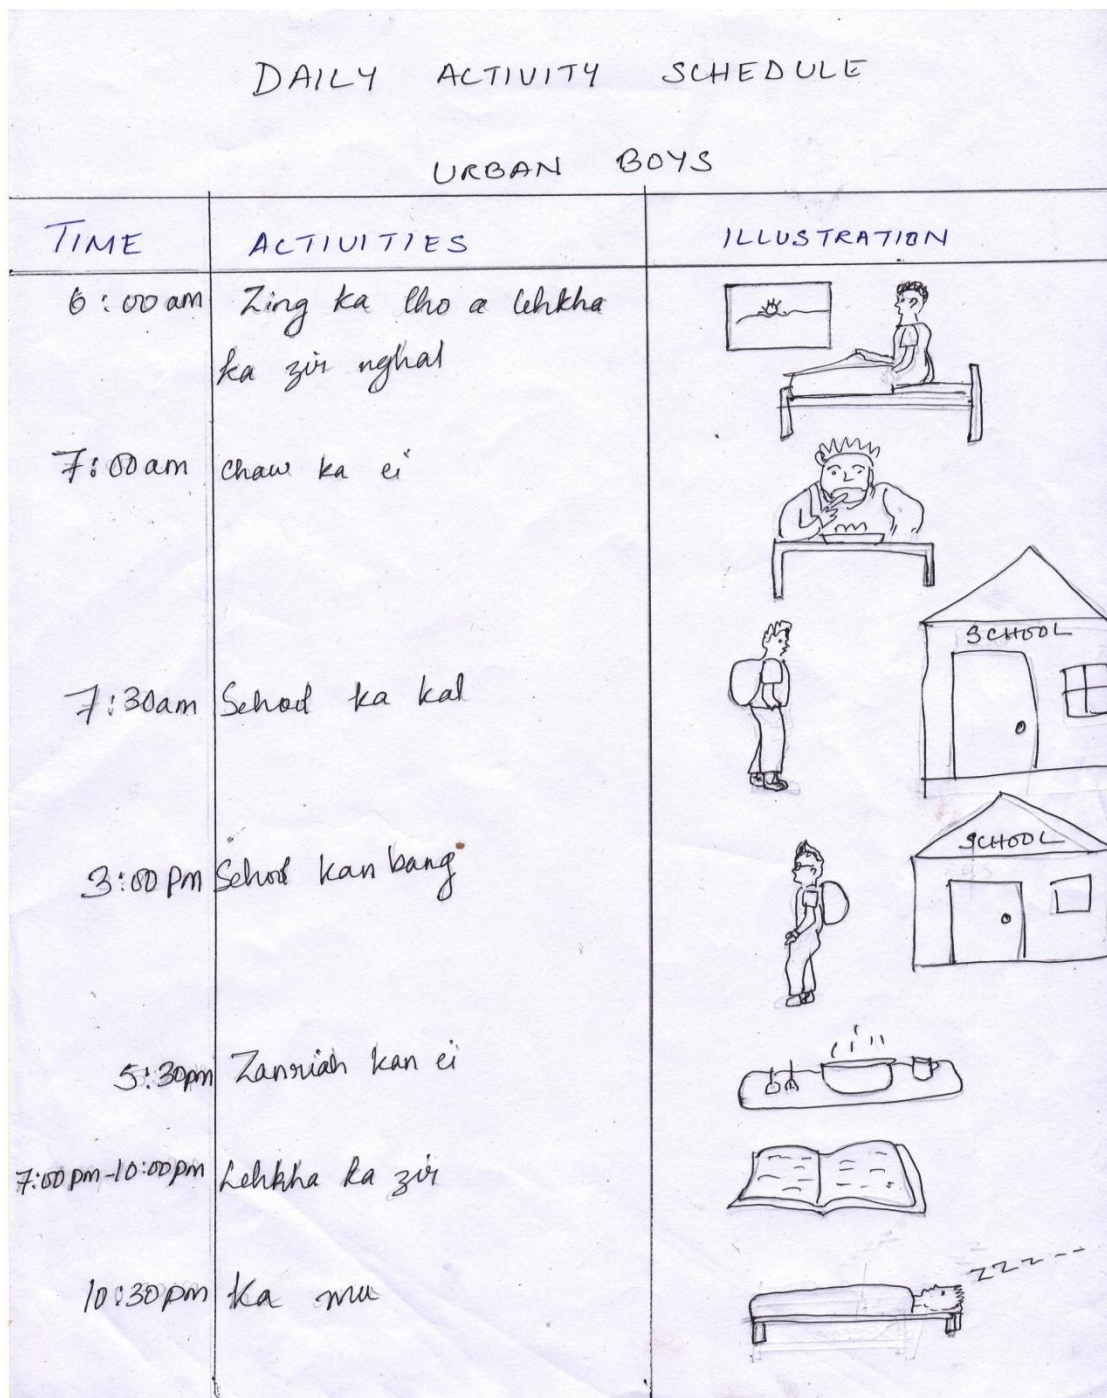 DAILY ACTIVITY SCHEDULE
URBAN BOYS
TIME ACTIVITIES ILLUSTRATION
6:00am Zing ka tho a lehkha
ka zir nghal
7:00am Chaw ka ei
7:30am School ka kal
SCHOOL
3:00pm School kan bang
SCHOOL
5:30pm Zanriah kan ei
7:00pm-10:00pm Lehkha ka zir
10:30pm Ka mu
zzz---